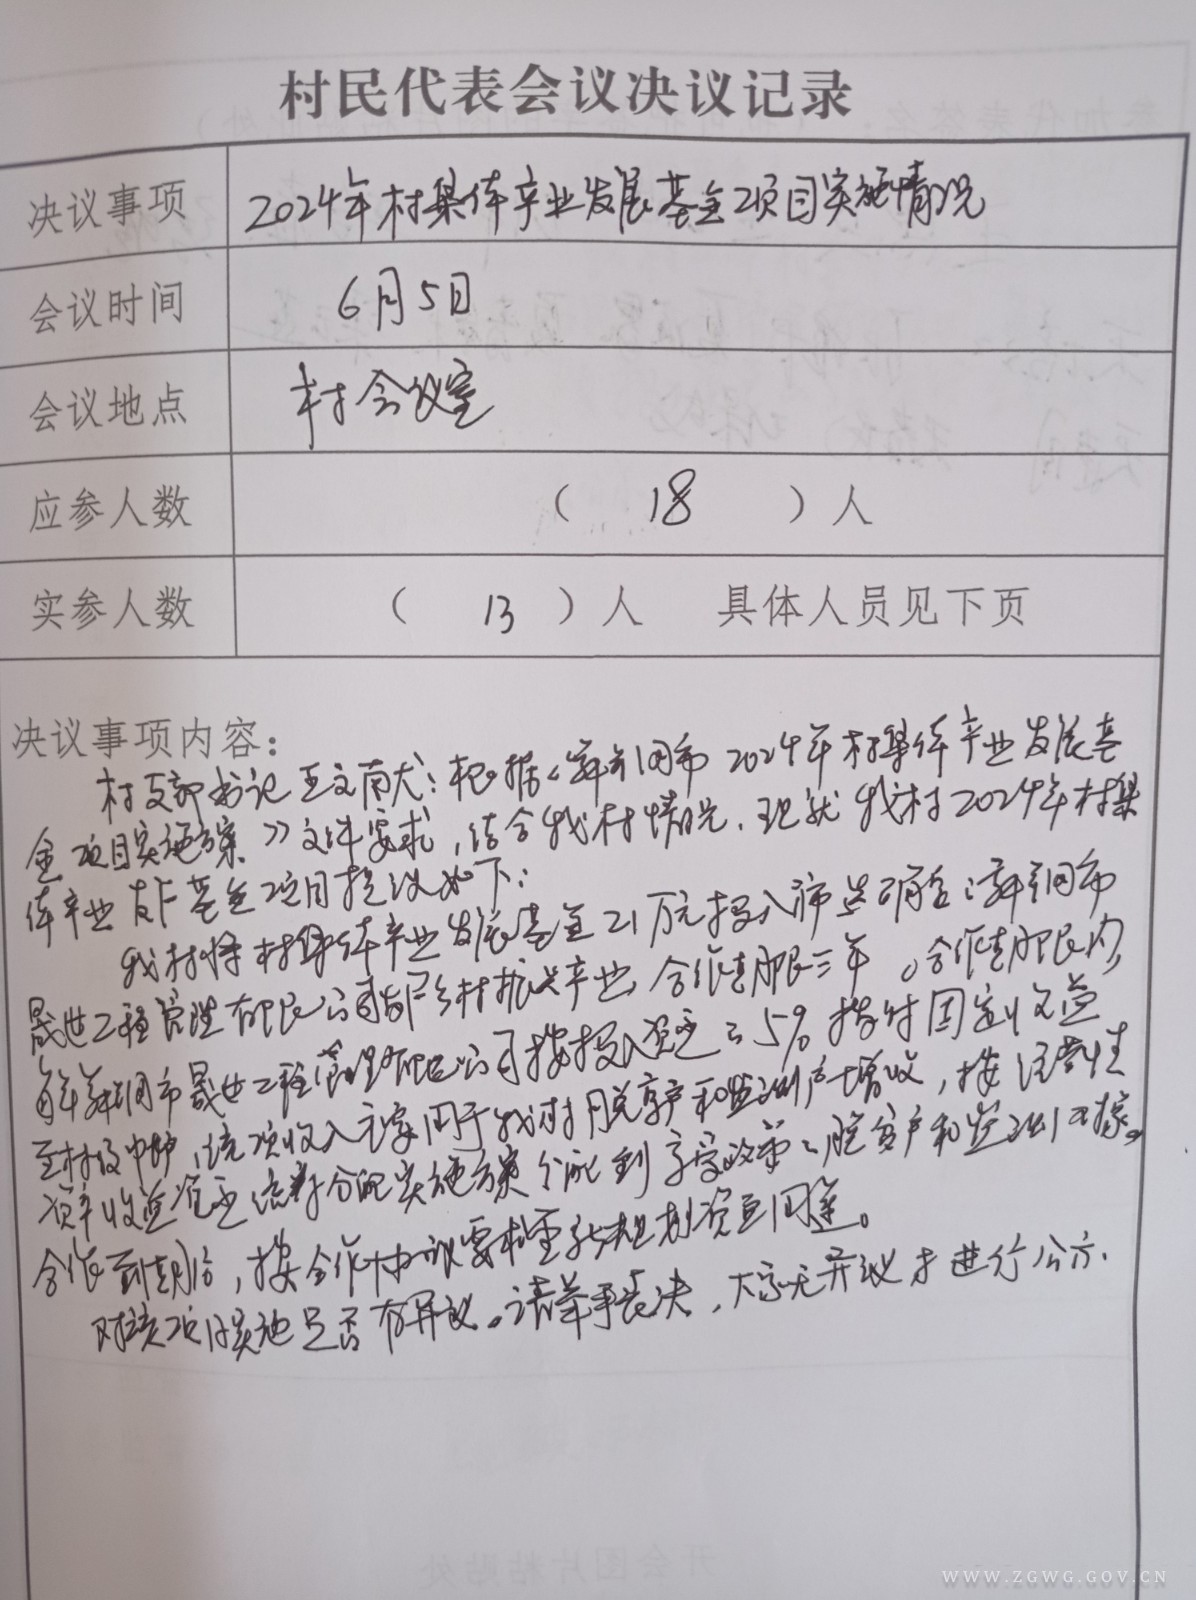 村民代表会议决议记录
决议事项 2024年村集体产业发展基金项目实施情况
会议时间 6月5日
会议地点 村会议室
应参人数 （ 18 ）人
实参人数 （ 13 ）人 具体人员见下页
决议事项内容：
村支部书记王文南尤：根据《舞钢市2024年村集体产业发展基
金项目实施方案》文件要求，结合我村情况，现就我村2024年村集
体产业发展基金项目提议如下：
我村将村集体产业发展基金21万元投入 舞钢市
晟世工程管理有限公司发展乡村振兴产业，合作期限三年。合作期限内，
每年舞钢市晟世工程管理有限公司按投入资金5%拨付固定收益
至村级 ，该项收入主要用于我村脱贫户和监测户增收，按经营性
资产收益资金 分配实施方案分配到享受政策的脱贫户和监测
合作到期后，按合作协议要求重新规划资金用途。
对该项目实施是否有异议。请举手表决，大家无异议才进行公示.
开会图片粘贴处
WWW.ZGWG.GOV.CN